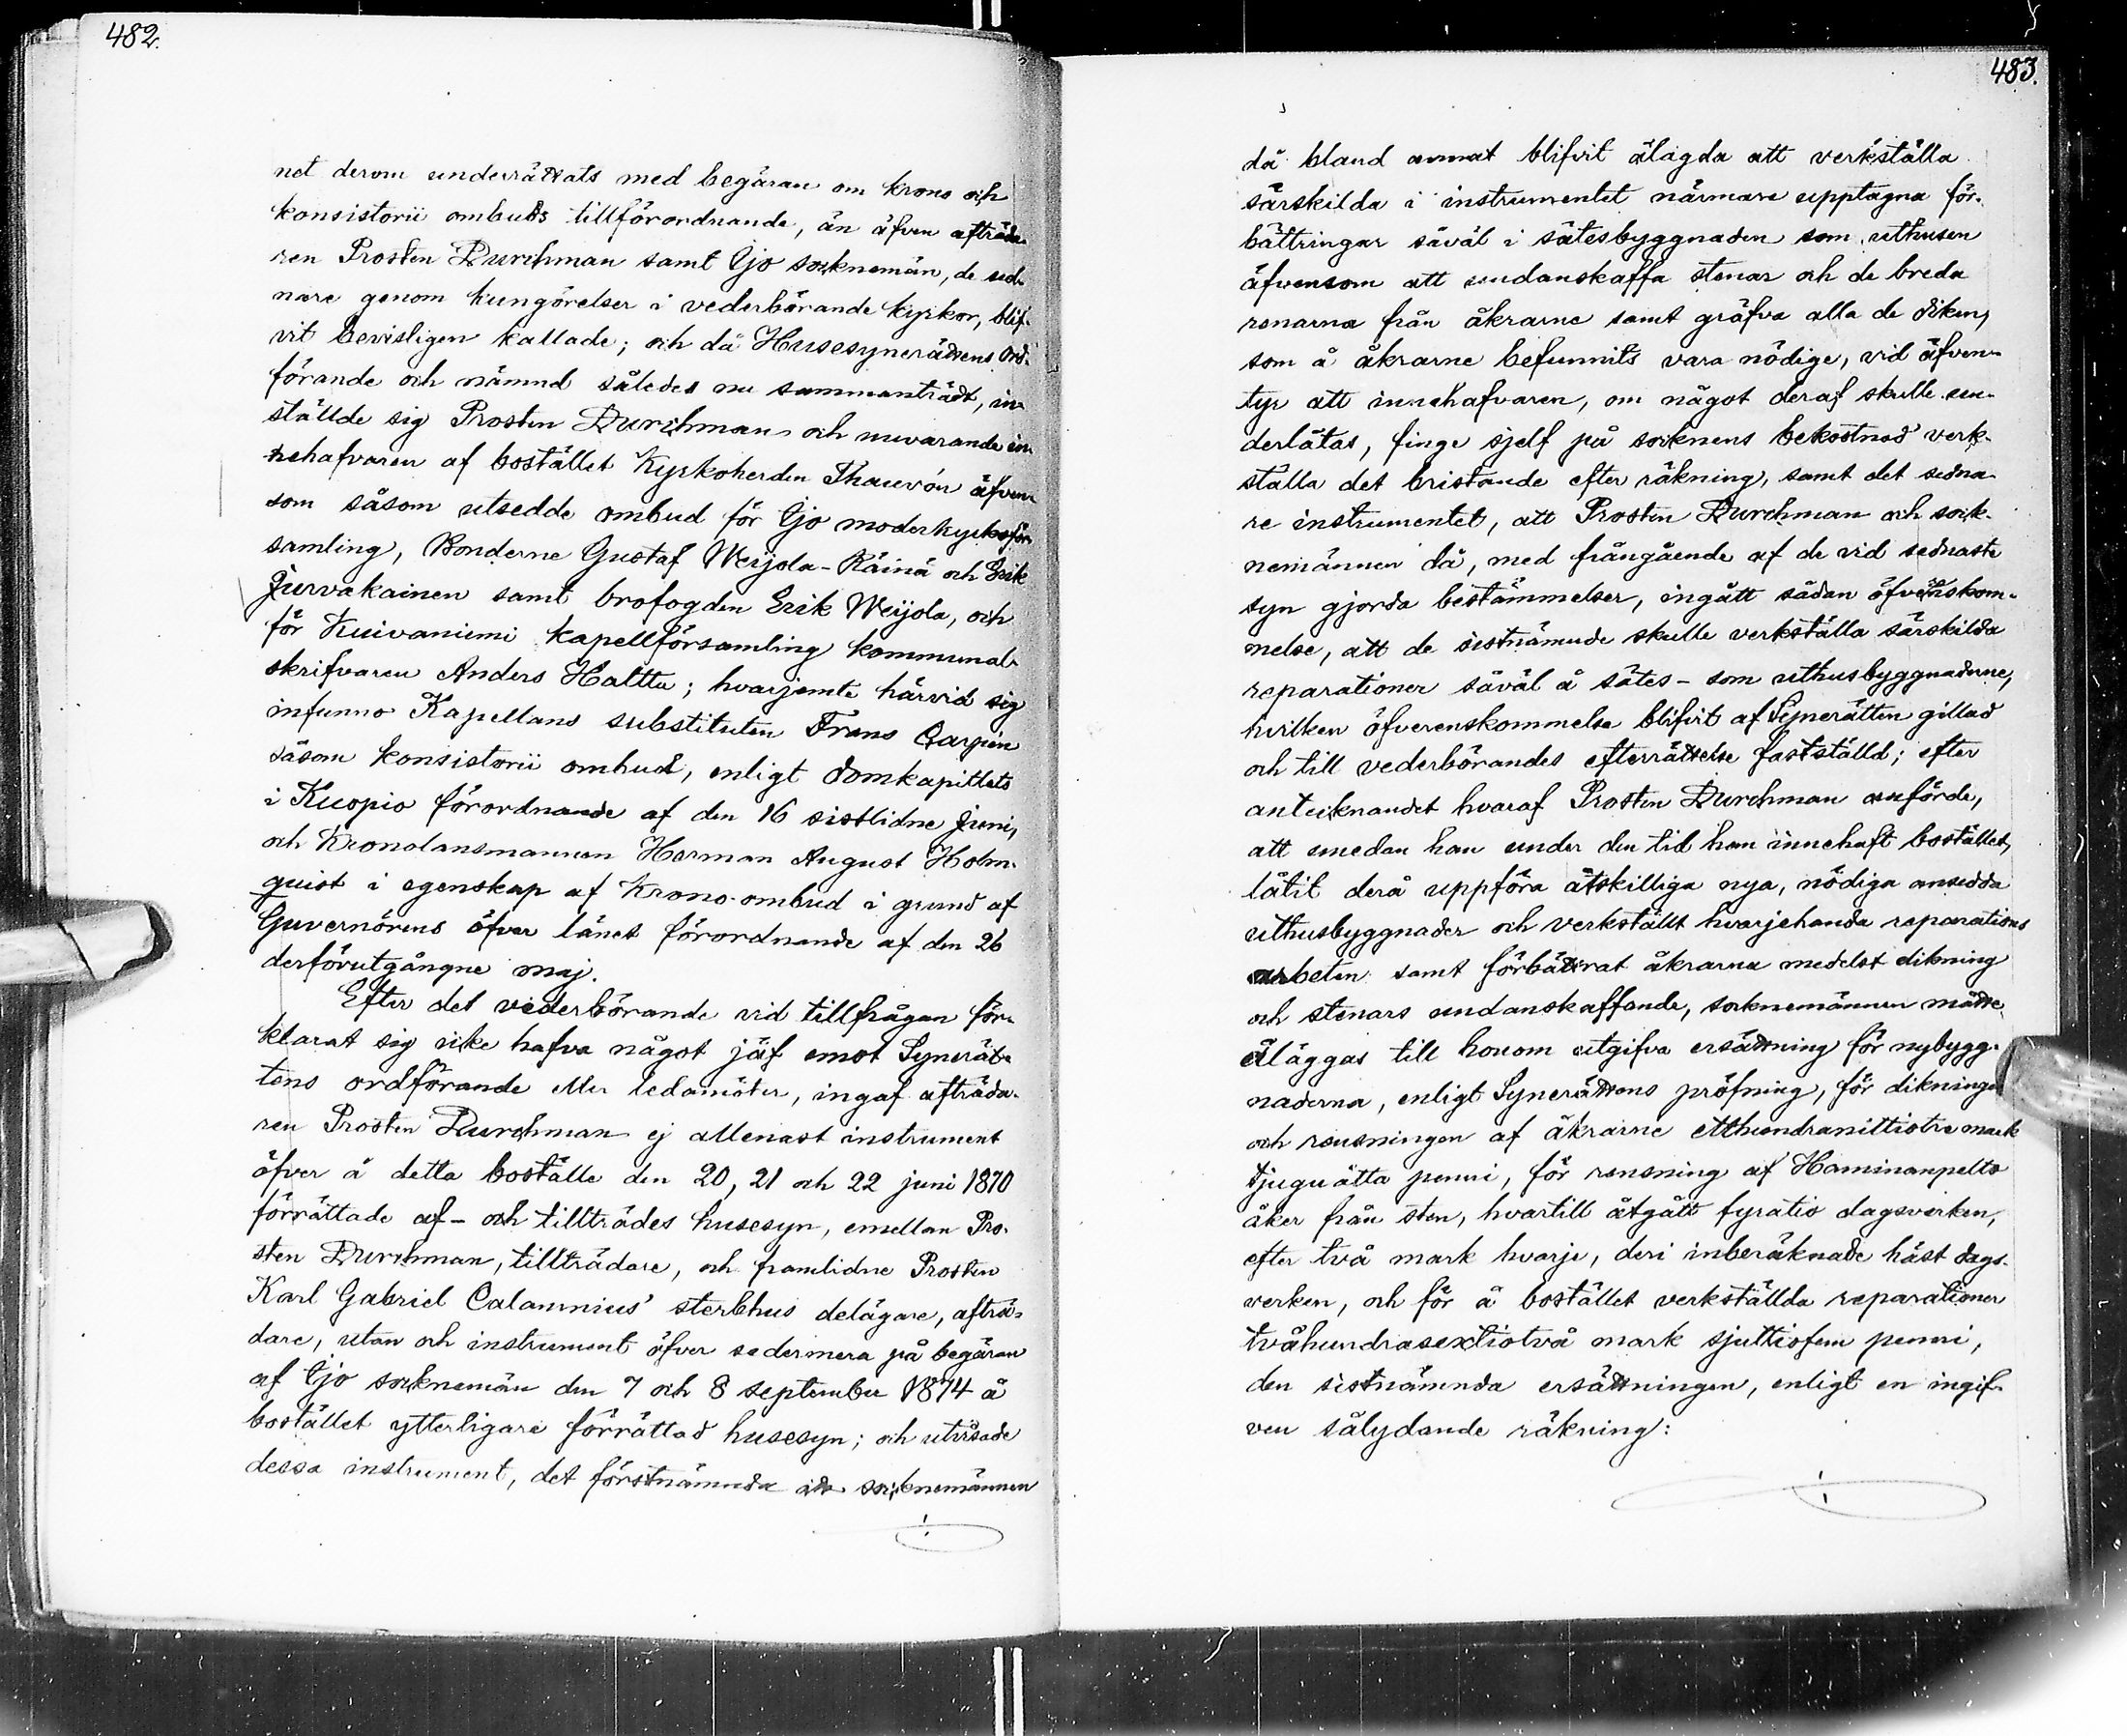 482.
net derom underrättats med begäran om krono och
konsistorii ombuds tillförordnande, än äfven afträda-
ren Prosten Durchman samt Ijo socknemän, de sed-
nare genom kungörelser i vederbörande kyrkor, blif-
vit bevisligen kallade; och då Husesynerättens Ord-
förande och nämnd således nu sammanträdt, in-
ställde sig Prosten Durchman och nuvarande in-
nehafvaren af bostället Kyrkoherden Thauvón äfven-
som såsom utsedde ombud för Ijo moderkyrkoför-
samling, Bonderne Gustaf Weijola-Räinä och Erik
Jurvakainen samt brofogden Erik Weijola, och
för Kuivaniemi kapellförsamling kommunal-
skrifvaren Anders Halttu; hvarjemte härvid sig
infunno Kapellans substituten Frans Carpén
såsom konsistorii ombud, enligt domkapitlets
i Kuopio förordnande af den 16 sistlidne Juni,
och Kronolänsmannen Herman August Holm-
quist i egenskap af Krono-ombud i grund af
Guvernörens öfver länet förordnande af den 26
derförutgångne maj.
Efter det vederbörande vid tillfrågan för-
klarat sig icke hafva något jäf emot Synerät-
tens ordförande eller ledamöter, ingaf afträda-
ren Prosten Durchman ej allenast instrument
öfver å detta boställe den 20, 21 och 22 juni 1870
förrättade af- och tillträdes husesyn, emellan Pro-
sten Durchman, tillträdare, och framlidne Prosten
Karl Gabriel Calamnius' sterbhus delägare, afträ-
dare, utan och instrument öfver sedermera på begäran
af Ijo socknemän den 7 och 8 september 1874 å
bostället ytterligare förrättad husesyn; och utvisade
dessa instrument, det förstnämnda att socknemännen
483.
då bland annat blifvit ålagda att verkställa
särskilda i instrumentet närmare upptagna för-
bättringar såväl i sätesbyggnaden som uthusen
äfvensom att undanskaffa stenar och de breda
renarna från åkrarne samt gräfva alla de diken,
som å åkrarne befunnits vara nödige, vid äfven-
tyr att innehafvaren, om något deraf skulle un-
derlåtas, finge sjelf på socknens bekostnad verk-
ställa det bristande efter räkning, samt det sedna-
re instrumentet, att Prosten Durchman och sock-
nemännen då, med frångående af de vid sednaste
syn gjorda bestämmelser, ingått sådan öfverenskom-
melse, att de sistnämnde skulle verkställa särskilda
reparationer såväl å sätes- som uthusbyggnaderne,
hvilken öfverenskommelse blifvit af Synerätten gillad
och till vederbörandes efterrättelse fastställd; efter
antecknandet hvaraf Prosten Durchman anförde,
att emedan han under den tid han innehaft bostället,
låtit derå uppföra åtskilliga nya, nödiga ansedda
uthusbyggnader och verkställt hvarjehanda reparations
arbeten samt förbättrat åkrarna medelst dikning
och stenars undanskaffande, socknemännen måtte
åläggas till honom utgifva ersättning för nybygg-
naderna, enligt Synerättens pröfning, för dikningen
och rensningen af åkrarne etthundranittiotre mark
tjuguåtta penni, för rensning af Haminanpelto
åker från sten, hvartill åtgått fyratio dagsverken,
efter två mark hvarje, deri inberäknade häst dags-
verken, och för å bostället verkställda reparationer
tvåhundrasextiotvå mark sjuttiofem penni,
den sistnämnda ersättningen, enligt en ingif-
ven sålydande räkning: